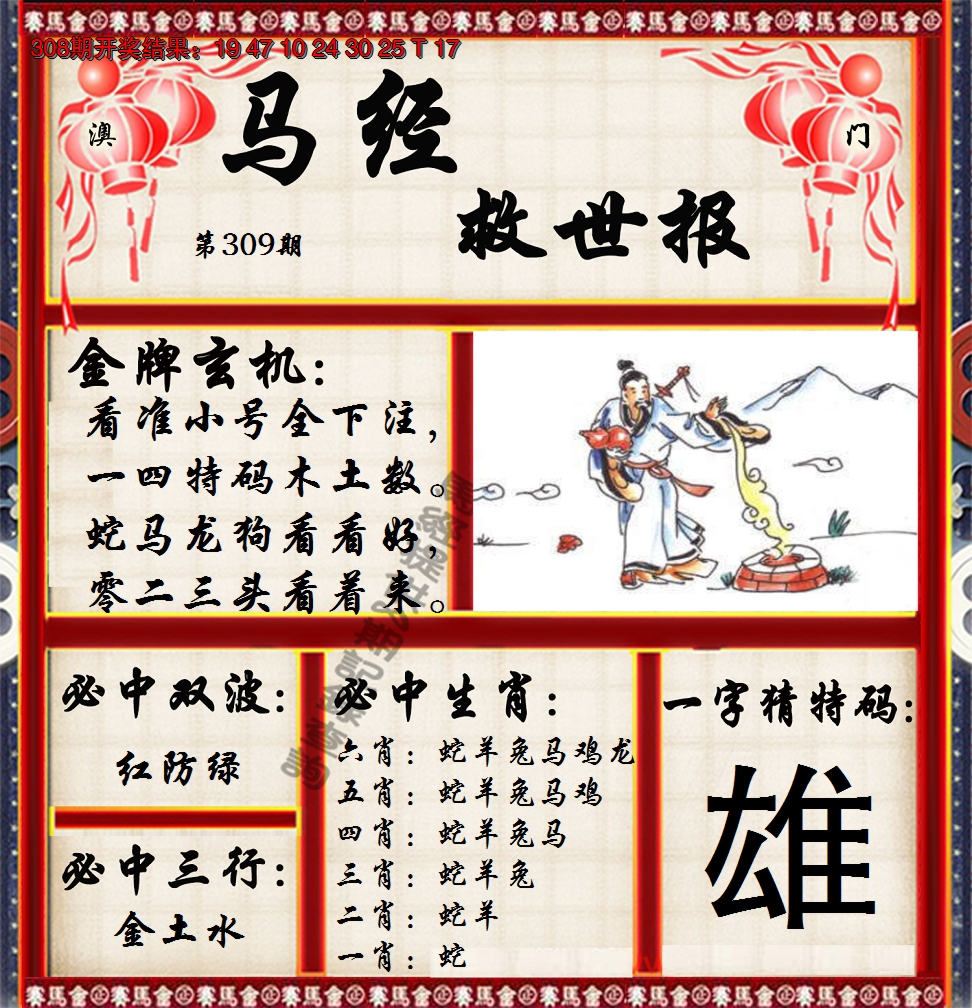 賽馬會 賽馬會 賽馬會 賽馬會 賽馬會 賽馬會 賽馬會
308期开奖结果：19 47 10 24 30 25 T 17
马经
澳
门
救世报
第309期
金牌玄机：
看准小号全下注，
一四特码木土数。
蛇马龙狗看看好，
零二三头看着来。
必中双波：
红防绿
必中三行：
金土水
必中生肖：
六肖：蛇羊兔马鸡龙
五肖：蛇羊兔马鸡
四肖：蛇羊兔马
三肖：蛇羊兔
二肖：蛇羊
一肖：蛇
一字猜特码：
雄